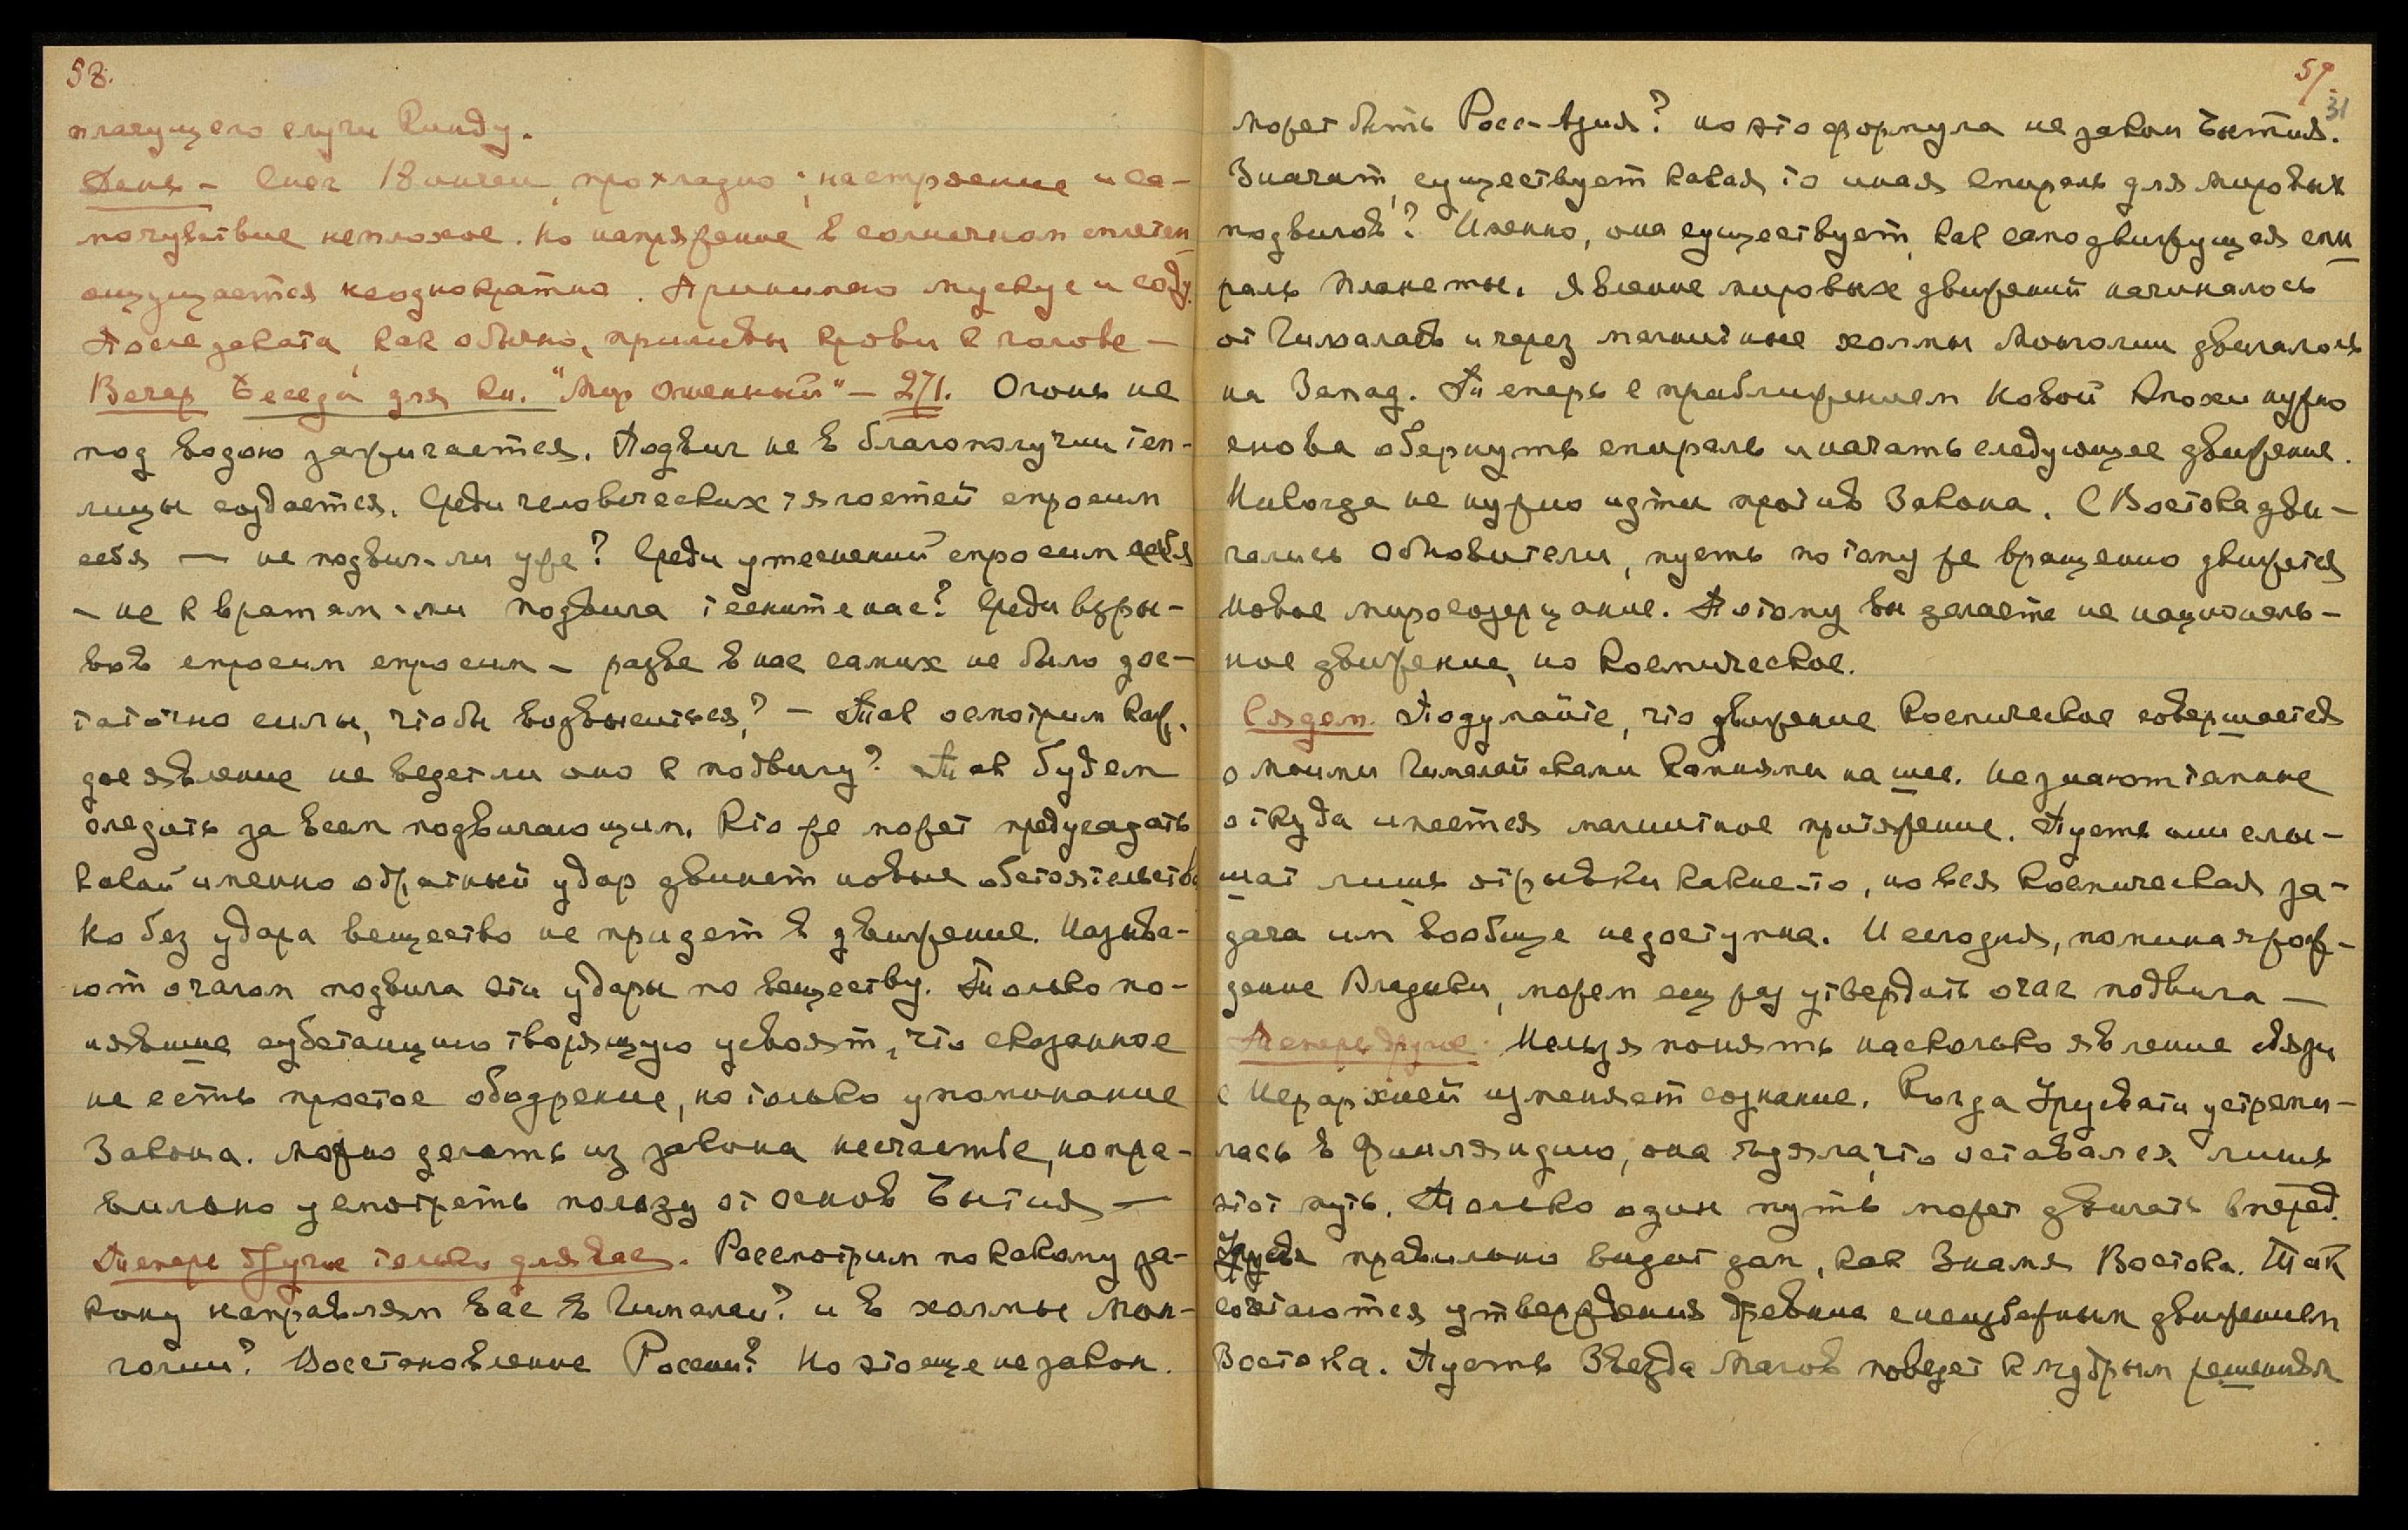 58.
плачущего слугу Кинду.
День – Снег 18 инчей, прохладно; настроение и са-
мочувствие неплохое. Но напряжение в солнечном сплетен.
ощущается неоднократно. Принимаю мускус и соду.
После заката, как обычно, приливы крови к голове –
Вечер Беседа для кн. "Мир Огненный" – 271. Огонь не
под водою зажигается. Подвиг не в благополучии теп-
лицы создается. Среди человеческих тягостей спросим
себя – не подвиг-ли уже? Среди утеснений спросим себя
– не к вратам-ли подвига тесните нас? Среди взры-
вов спросим спросим – разве в нас самих не было дос-
таточно силы, чтобы возвыситься? – Так осмотрим каж.
дое явление не ведет ли оно к подвигу? Так будем
следить за всем подвигающим. Кто же может предугадать
какой именно обратный удар двинет новые обстоятельства
Но без удара вещество не придет в движение. Называ-
ют очагом подвига эти удары по веществу. Только по-
нявшие субстанцию творящую усвоят, что сказанное
не есть простое ободрение, но только упоминание
Закона. Можно делать из закона несчастье, но пра-
вильно усмотреть пользу от основ Бытия –
Теперь другое только для вас. Рассмотрим по какому за-
кону направлям вас в Гималаи? и в холмы Мон-
голии? Восстановление России? Но это еще не закон.
59.
31
может быть Росс-Азия? но это формула не закон Бытия.
Значит, существует какая то иная спираль для мировых
подвигов? Именно, она существует, как самодвижущая спи
раль планеты. Явление мировых движений начиналось
от Гималаев и через магнитные холмы Монголии двигалось
на Запад. Теперь с приближением Новой Эпохи нужно
снова обернуть спираль и начать следующее движение.
Никогда не нужно идти против Закона. С Востока дви-
гались Обновители, пусть по тому же вращению движется
новое миросозерцание. Потому вы делаете не националь-
ное движение, но Космическое.
Сядем. Подумайте, что движение Космическое совершается
с Моими Гималайскими Камнями на шее. Не знают темные
откуда имеется магнитное притяжение. Пусть они слы-
шат лишь отрывки какие-то, но вся Космическая за-
дача им вообще недоступна. И сегодня, поминая рож-
дение Владыки, можем еще раз утвердить очаг подвига –
Теперь другое. Нельзя понять насколько явление связи
с Иерархией изменяет сознание. Когда Урусвати устреми-
лась в Финляндию, она знала, что оставался лишь
этот путь. Только один путь может двигать вперед.
Урусв. правильно видит дом, как Знамя Востока. Так
сочетаются утверждения древние с неизбежным движением
Востока. Пусть Звезда Магов поведет к мудрым решениям